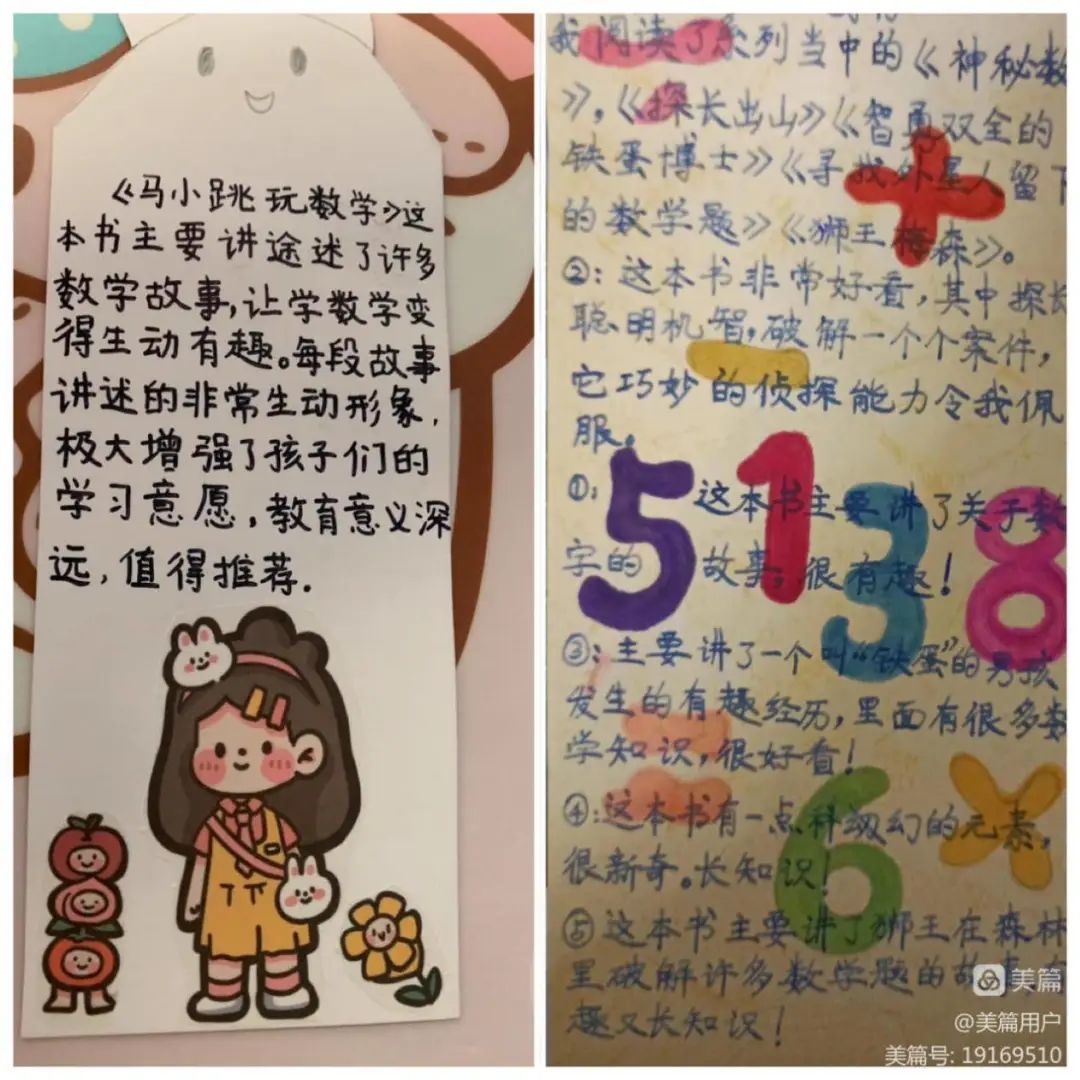 《马小跳玩数学》这
本书主要讲途述了许多
数学故事,让学数学变
得生动有趣。每段故事
讲述的非常生动形象,
极大增强了孩子们的
学习意愿,教育意义深
远,值得推荐.
我阅读了系列当中的《神秘数
》,《探长出山》《智勇双全的
铁蛋博士》《寻找外星人留下
的数学题》《狮王梅森》。
②:这本书非常好看,其中探长
聪明机智,破解一个个案件,
它巧妙的侦探能力令我佩
服。
①:这本书主要讲了关于数
字的故事,很有趣!
5 1 3 8
③:主要讲了一个叫“铁蛋”的男孩
发生的有趣经历,里面有很多数
学知识,很好看!
④:这本书有一点科幻的元素,
很新奇。长知识!
6
⑤这本书主要讲了狮王在森林
里破解许多数学题的故事
趣又长知识!
美篇
@美篇用户
美篇号: 19169510